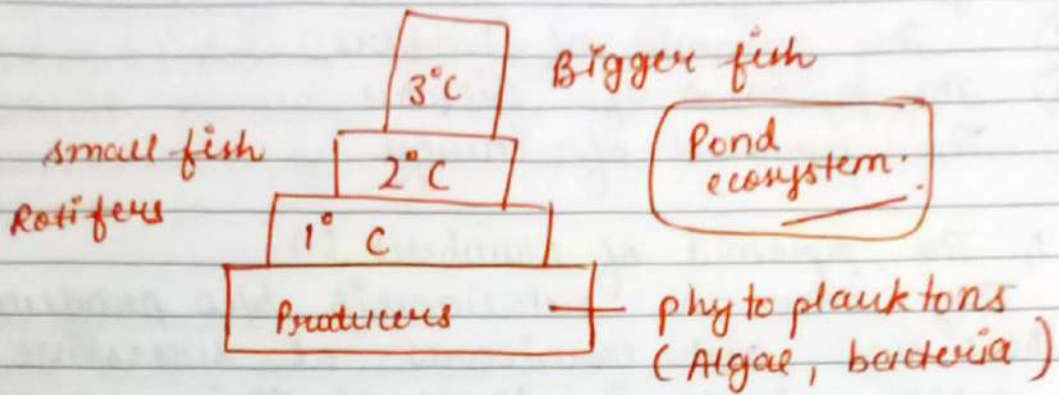 3°C
Bigger fish
small fish
2°C
Pond
ecosystem.
Rotifers
1° C
Producers
phyto planktons
(Algae, bacteria)